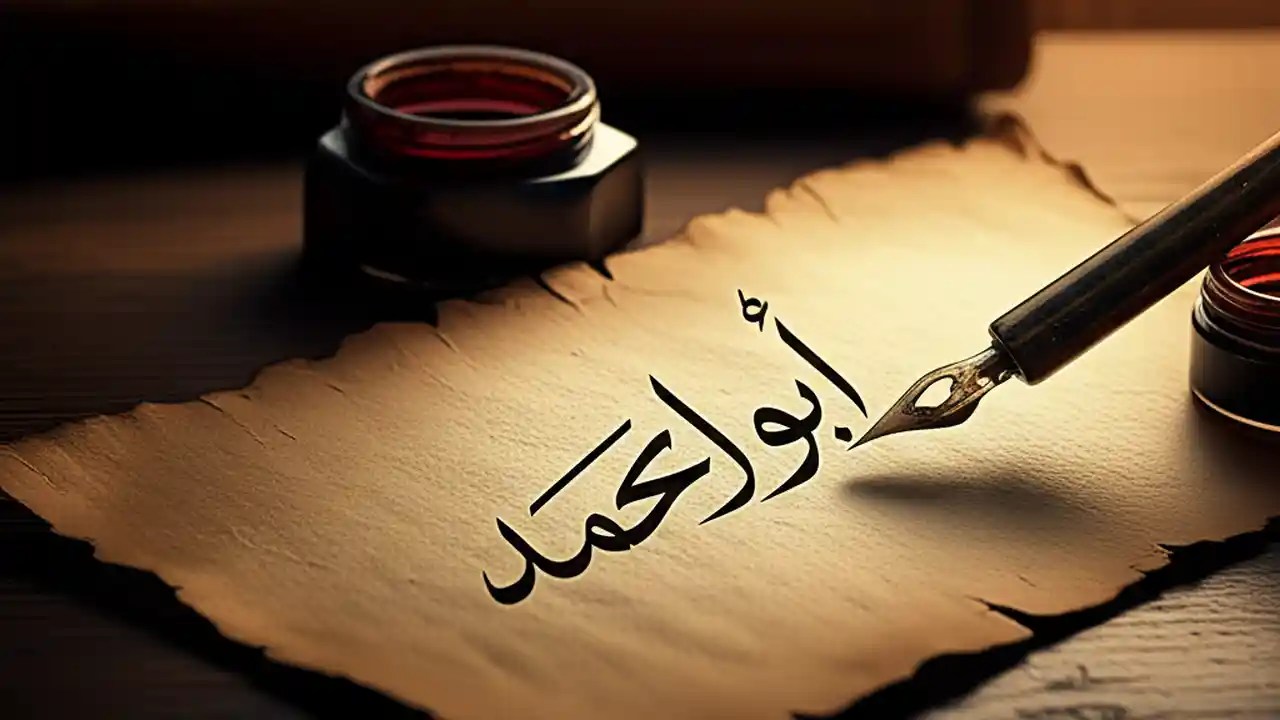 أبو احمد